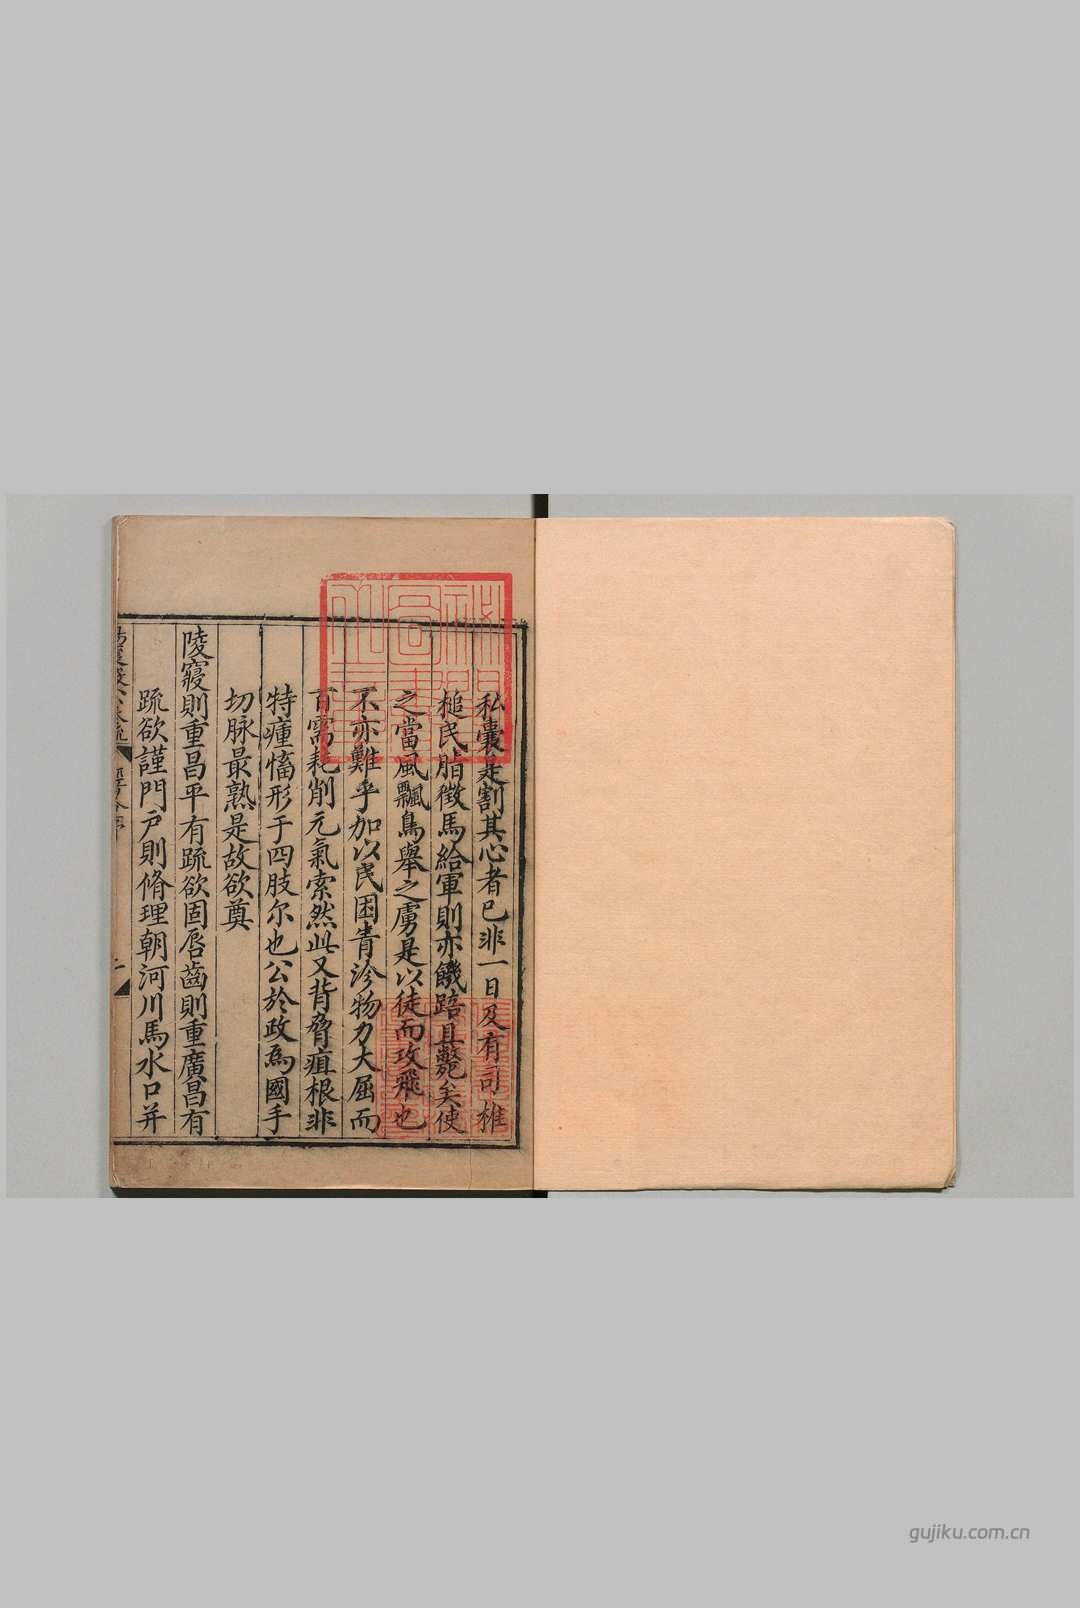 私囊是割其心者已非一日及有司搉
槌民脂徵馬給軍則亦饑踣且斃矣使
之當風飄鳥舉之虜是以徒而攻飛也
不亦難乎加以民困眚沴物力大屈而
百需耗削元氣索然此又背脅疽根非
特瘇慉形于四肢尔也公於政爲國手
切脉最熟是故欲奠
陵寢則重昌平有疏欲固唇齒則重廣昌有
疏欲謹門戶則脩理朝河川馬水口并
gujiku.com.cn